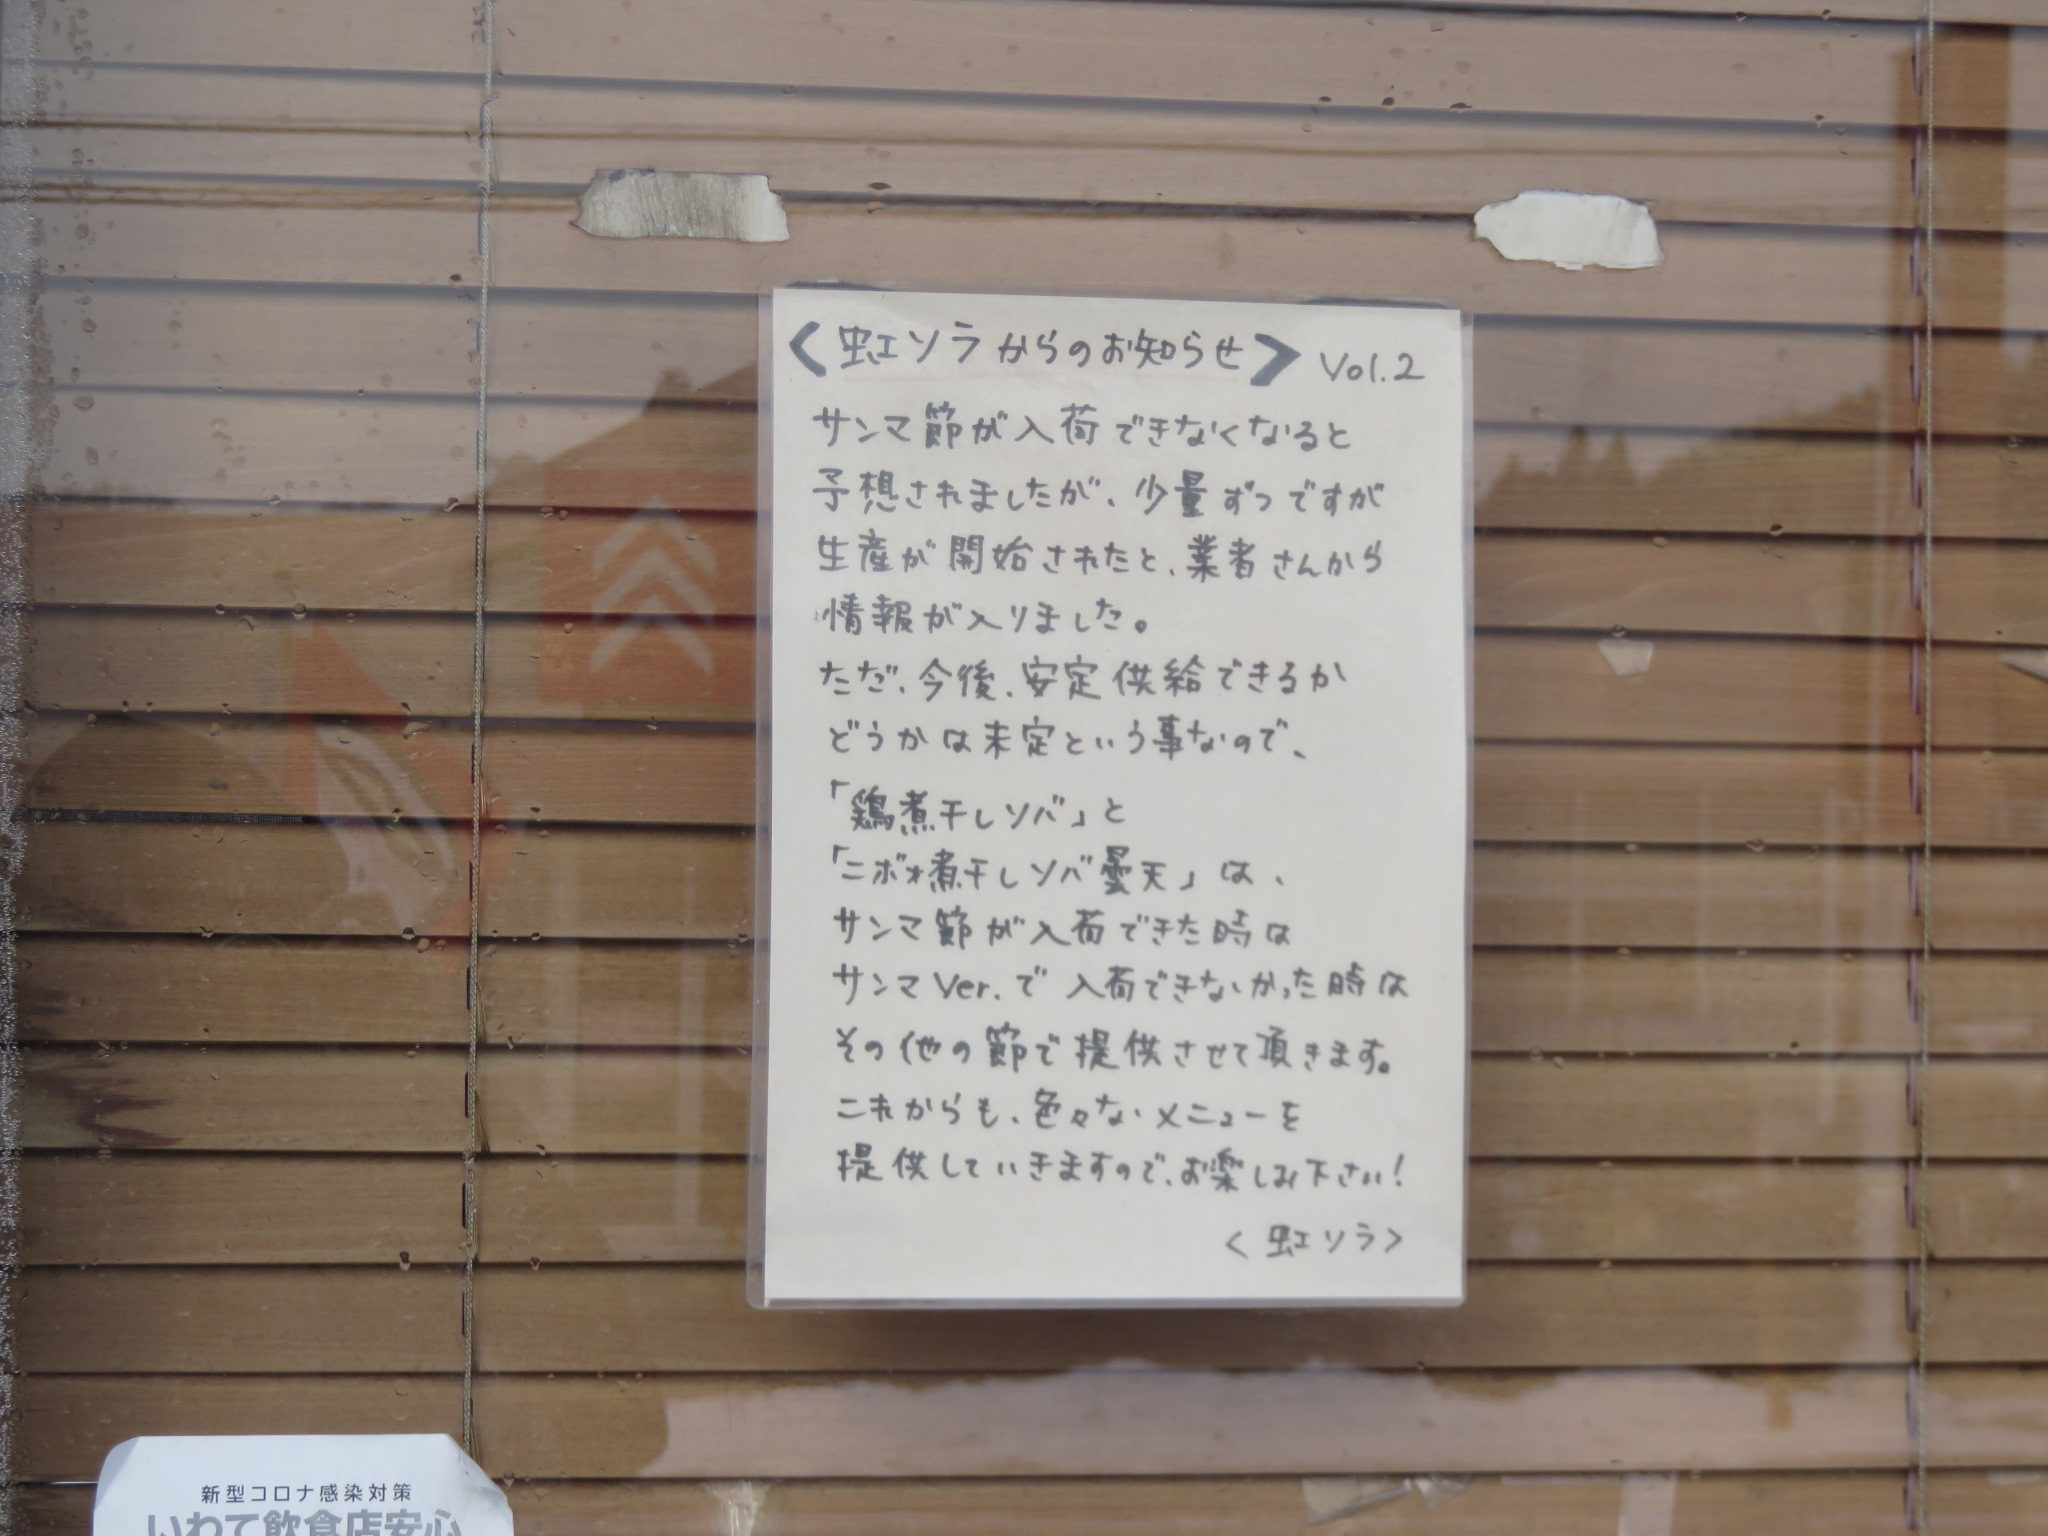 <虹ソラからのお知らせ> Vol.2
サンマ節が入荷できなくなると
予想されましたが、少量ずつですが
生産が開始されたと、業者さんから
情報が入りました。
ただ、今後、安定供給できるか
どうかは未定という事なので、
「鶏煮干しソバ」と
「ニボォ煮干しソバ曇天」は、
サンマ節が入荷できた時は
サンマVer.で入荷できなかった時は
その他の節で提供させて頂きます。
これからも、色々なメニューを
提供していきますので、お楽しみ下さい!
<虹ソラ>
新型コロナ感染対策
いわて飲食店安心